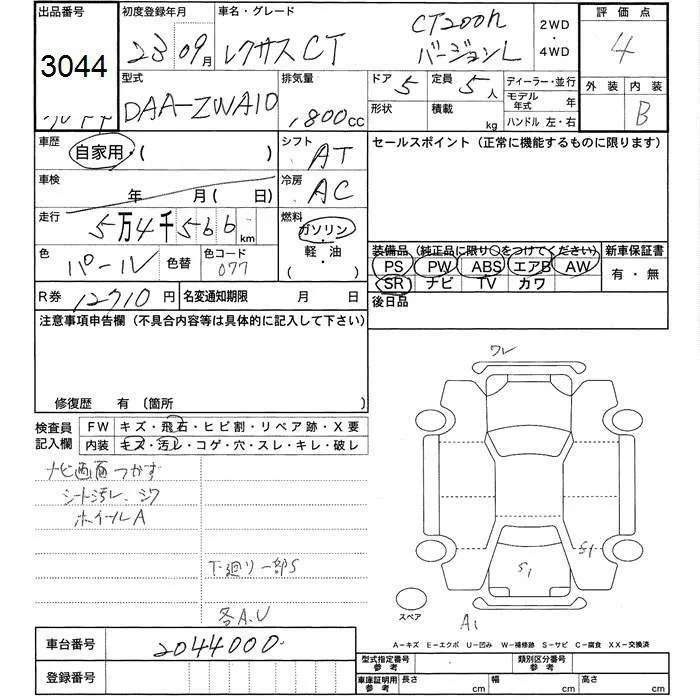 出品番号 初度登録年月 車名・グレード 評価点
3044 23 09月 レクサス CT CT200h バージョンL 2WD・4WD 4
型式 排気量 ドア 5 定員 5人 ディーラー・並行 外装 内装
DAA-ZWA10 1,800cc 形状 積載 kg モデル年式 年 ハンドル 左・右 B
車歴 自家用・( ) シフト AT セールスポイント (正常に機能するものに限ります)
車検 年 月( 日) 冷房 AC
走行 5万4千566km 燃料 ガソリン・軽・油 ( )
色 パール 色替 色コード 077
装備品 (純正品に限り○をつけてください) 新車保証書
PS PW ABS エアB AW 有・無
SR ナビ TV カワ
R券 12710円 名変通知期限 月 日 後日品
注意事項申告欄 (不具合内容等は具体的に記入して下さい)
修復歴 有 (箇所
検査員記入欄 FW キズ・飛石・ヒビ割・リペア跡・X要
内装 キズ・汚レ・コゲ・穴・スレ・キレ・破レ
ナビ画面つかず
シート汚レ、シワ
ホイールA
下廻り一部S
各A.U
ワレ
S1
S1
A1
スペア
A－キズ E－エクボ U－凹み W－補修跡 S－サビ C－腐食 XX－交換済
車台番号 2044000
登録番号
型式指定番号参考 類別区分番号参考
車庫証明用参考 長さ cm 幅 cm 高さ cm